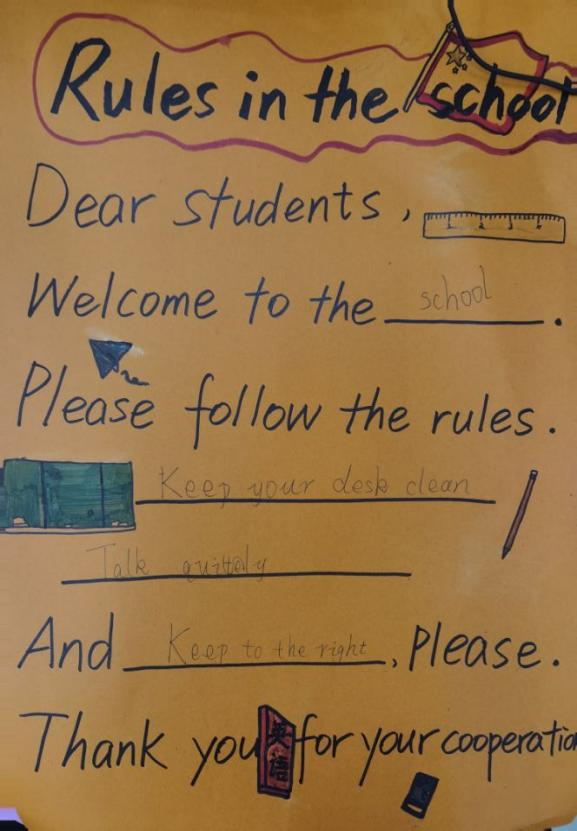 Rules in the school
Dear students,
Welcome to the school.
Please follow the rules.
Keep your desk clean
Talk
And Keep to the right, please.
Thank you 英语 for your cooperation